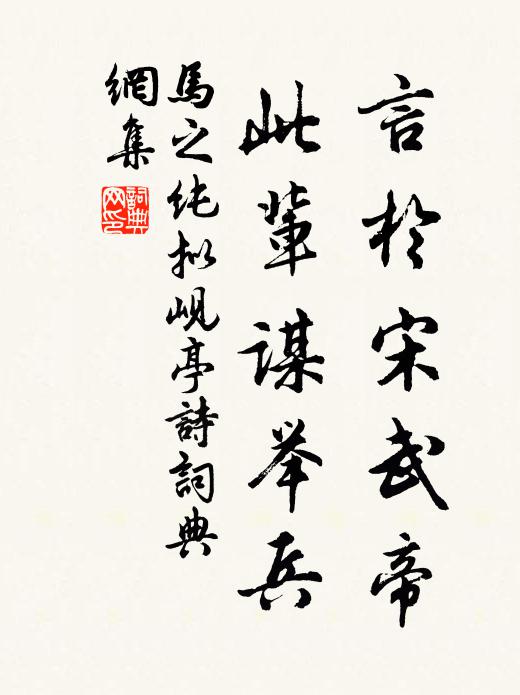 言於宋武帝
此輩謀举兵
馬之纯拟峴亭詩詞典
網集
詞典
网印